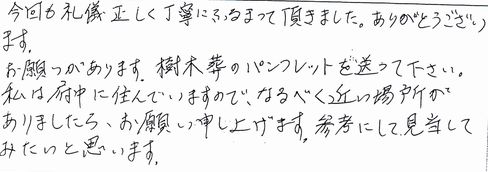 今回も礼儀正しく丁寧にふるまって頂きました。ありがとうござい
ます。
お願いがあります。樹木葬のパンフレットを送って下さい。
私は府中に住んでいますので、なるべく近い場所が
ありましたら、お願い申し上げます。参考にして見当して
みたいと思います。